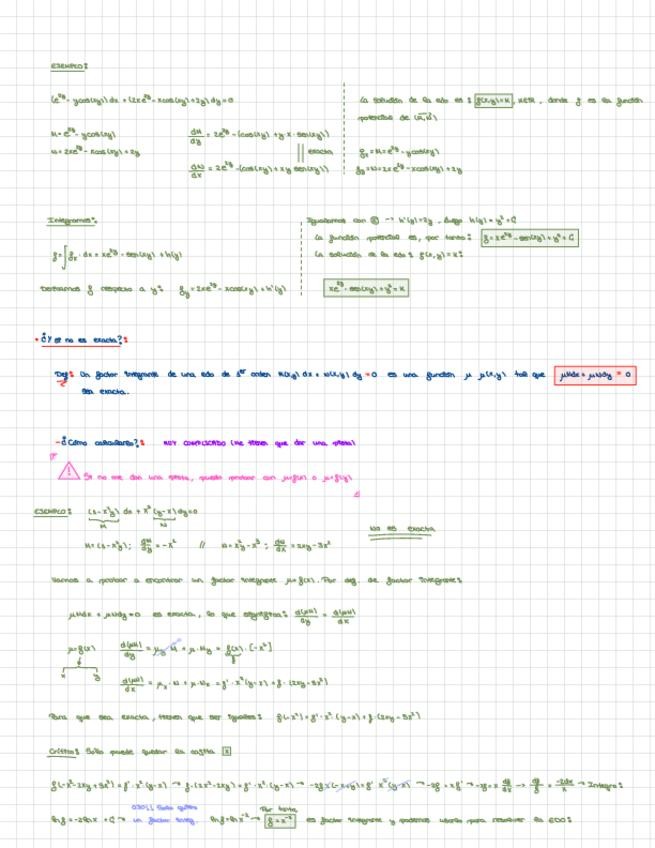 EJEMPLO:
(e^{2y} - ycos(xy)) dx + (2xe^{2y} - xcos(xy) + 2y) dy = 0
M = e^{2y} - ycos(xy)
N = 2xe^{2y} - xcos(xy) + 2y
dM/dy = 2e^{2y} - (cos(xy) + y·x·sen(xy))
|| exacta
dN/dx = 2e^{2y} - (cos(xy) + xy sen(xy))
La solución de la edo es: f(x,y)=K, K∈R, donde f es la función
potencial de (M,N)
f_x = M = e^{2y} - ycos(xy)
f_y = N = 2xe^{2y} - xcos(xy) + 2y
Integramos:
f = ∫ f_x · dx = xe^{2y} - sen(xy) + h(y)
Derivamos f respecto a y: f_y = 2xe^{2y} - xcos(xy) + h'(y)
Igualamos con → h'(y) = 2y, luego h(y) = y² + C
La función potencial es, por tanto: f = xe^{2y} - sen(xy) + y² + C
La solución de la edo: f(x,y) = K:
xe^{2y} - sen(xy) + y² = K
• ¿Y si no es exacta?:
Def: Un factor integrante de una edo de 1er orden M(x,y) dx + N(x,y) dy = 0 es una función μ μ(x,y) tal que μMdx + μNdy = 0
sea exacta.
- ¿Cómo calcularlo?: MUY COMPLICADO (Me tienen que dar una pista)
Si no me dan una pista, puedo probar con μ=f(x) o μ=f(y)
EJEMPLO: (1-x²y) dx + x²(y-x)dy=0
M N
M = (1-x²y); dM/dy = -x² // N = x²y - x³; dN/dx = 2xy - 3x²
No es exacta
Vamos a probar a encontrar un factor integrante μ=f(x). Por def. de factor integrante:
μMdx + μNdy = 0 es exacta, lo que significa: d(μM)/dy = d(μN)/dx
μ=f(x)
x y
d(μM)/dy = μ_y·M + μ·M_y = f(x)·[-x²]
f
d(μN)/dx = μ_x·N + μ·N_x = f'·x²(y-x) + f·(2xy-3x²)
Para que sea exacta, tienen que ser iguales: f(-x²) = f'·x²·(y-x) + f·(2xy-3x²)
Crítico: Sólo puede quedar la x
f(-x²-2xy+3x²) = f'·x²(y-x) → f·(2x²-2xy) = f'·x²·(y-x) → -2f·x(-x+y) = f'·x²(y-x) → -2f = x f' → -2f = x df/dx → df/f = -2dx/x → Integro:
lnf = -2lnx + C → un factor integ. lnf = lnx^{-2} → f = x^{-2} es factor integrante y podemos usarlo para resolver la EDO:
Por tanto